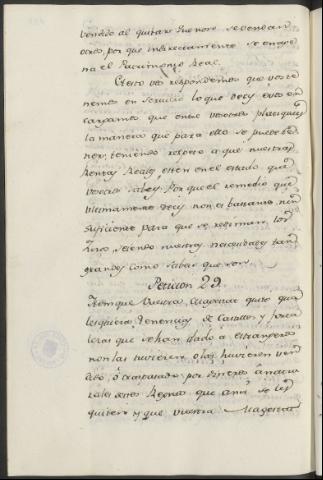 vendido al quitar, e que no se vendan
otros, por que indirectamente se enage-
na el Patrimonio Real.
A esto vos respondemos que vos te-
nemos en servicio lo que decis, e vos en-
cargamos que entre vosotros platiqueis
la manera que para ello se puede te-
ner, teniendo respeto a que nuestras
Rentas Reales esten en el estado que
vosotros sabeis. Por que el remedio que
ultimamente decis non es bastante, nin
suficiente para que se rediman los
Juros, siendo nuestras necesidades tan
grandes como sabeis que son.
Peticion 29.
Itemque Vuestra Magestad quite qua-
lesquiera Tenencias de Castillos y forta-
lezas que se han dado à estrangeros
non las tuvieren o las huvieren ven-
dido, ò traspasado por dineros à natu-
rales destos Reynos que ansi se les
quiten y que vuestra Magestad